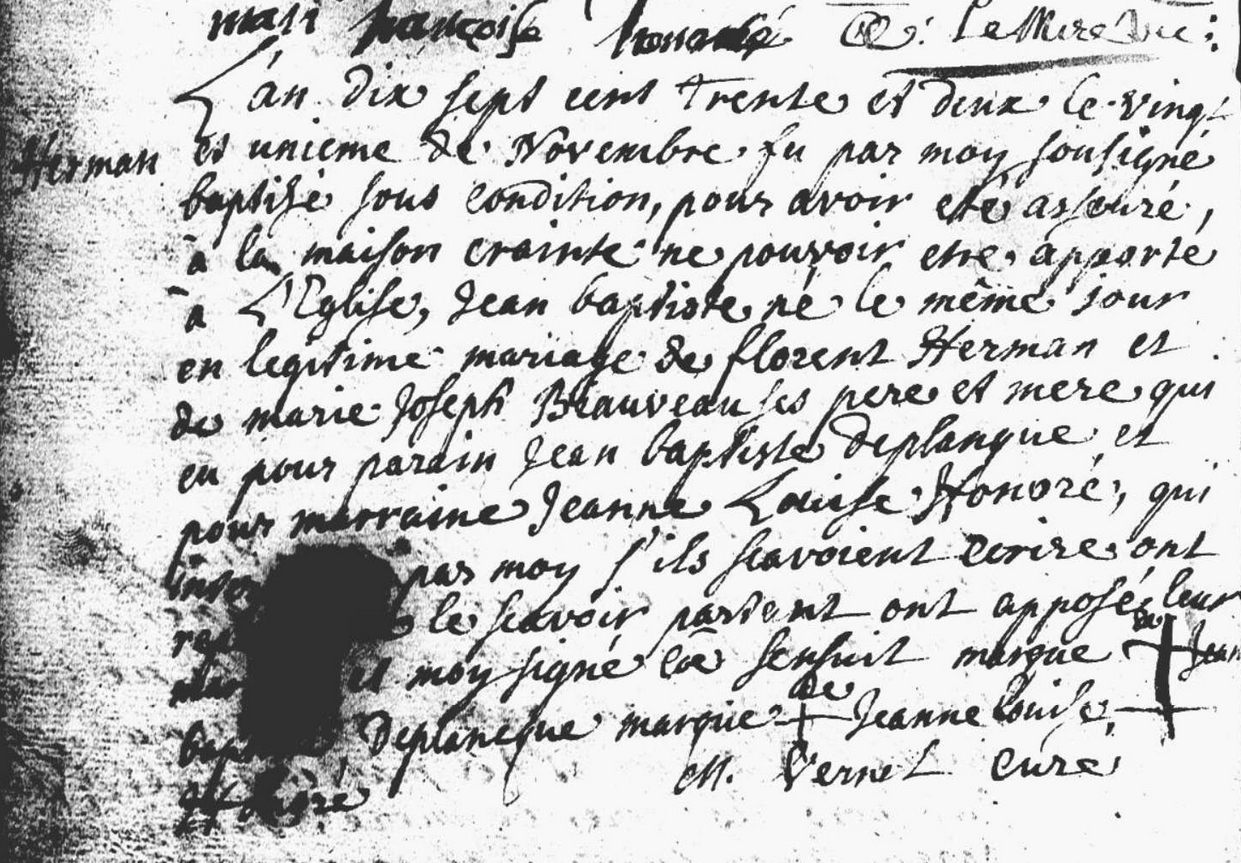 mari françoise honorée Le Miré
L'an dix sept cent trente et deux le vingt
Herman
et unieme de Novembre fu par moy sousigné
baptisé sous condition, pour avoir eté asseuré,
a la maison crainte ne pouvoir etre apporté
a L'Eglise, Jean baptiste né le même jour
en legitime mariage de florent Herman et
de marie Joseph Beauveau ses pere et mere qui
eu pour parain Jean baptiste deplanque et
pour marraine Jeanne Louise Honoré, qui
par moy s'ils scavoient ecrire ont
le scavoir partent ont apposé leur
et moy signé coe sensuit marque de Jean
Deplancque marque de Jeanne Louise
Honoré M. Vernel curé